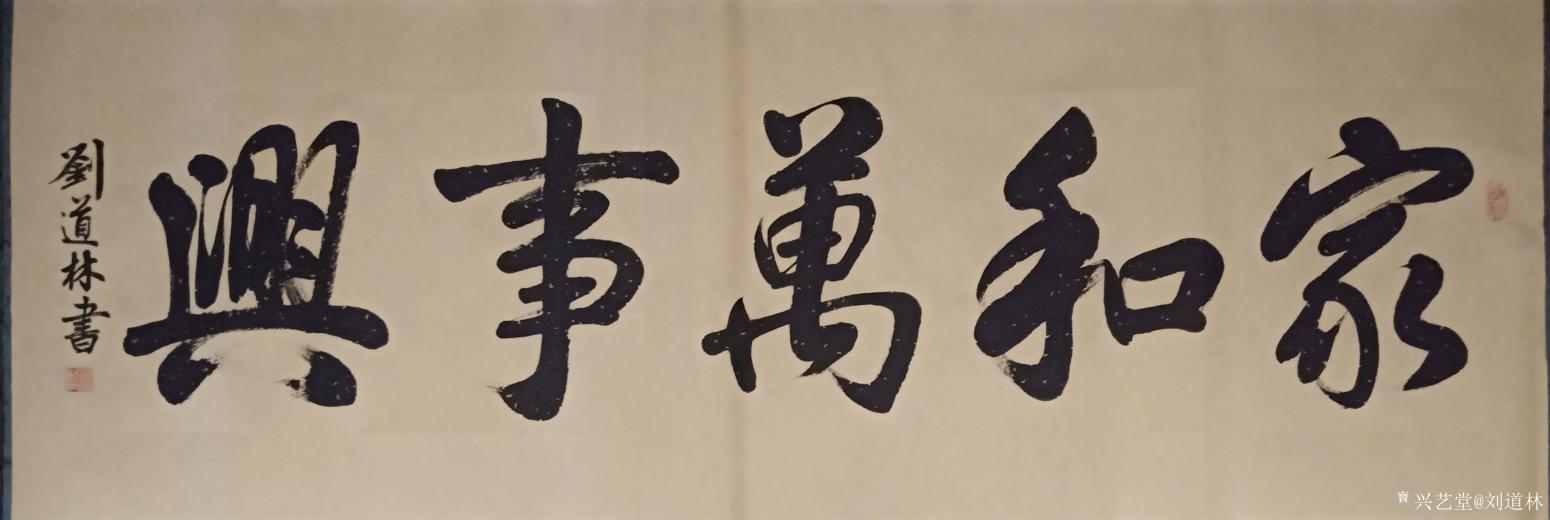 家和萬事興
劉道林書
兴艺堂@刘道林